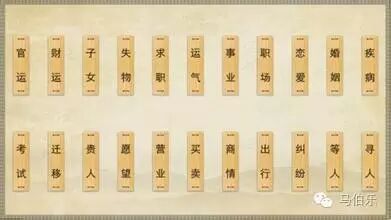 官运
财运
子女
失物
求职
运气
事业
职场
恋爱
婚姻
疾病
考试
迁移
贵人
愿望
营业
买卖
商情
出行
纠纷
等人
寻人
马伯乐